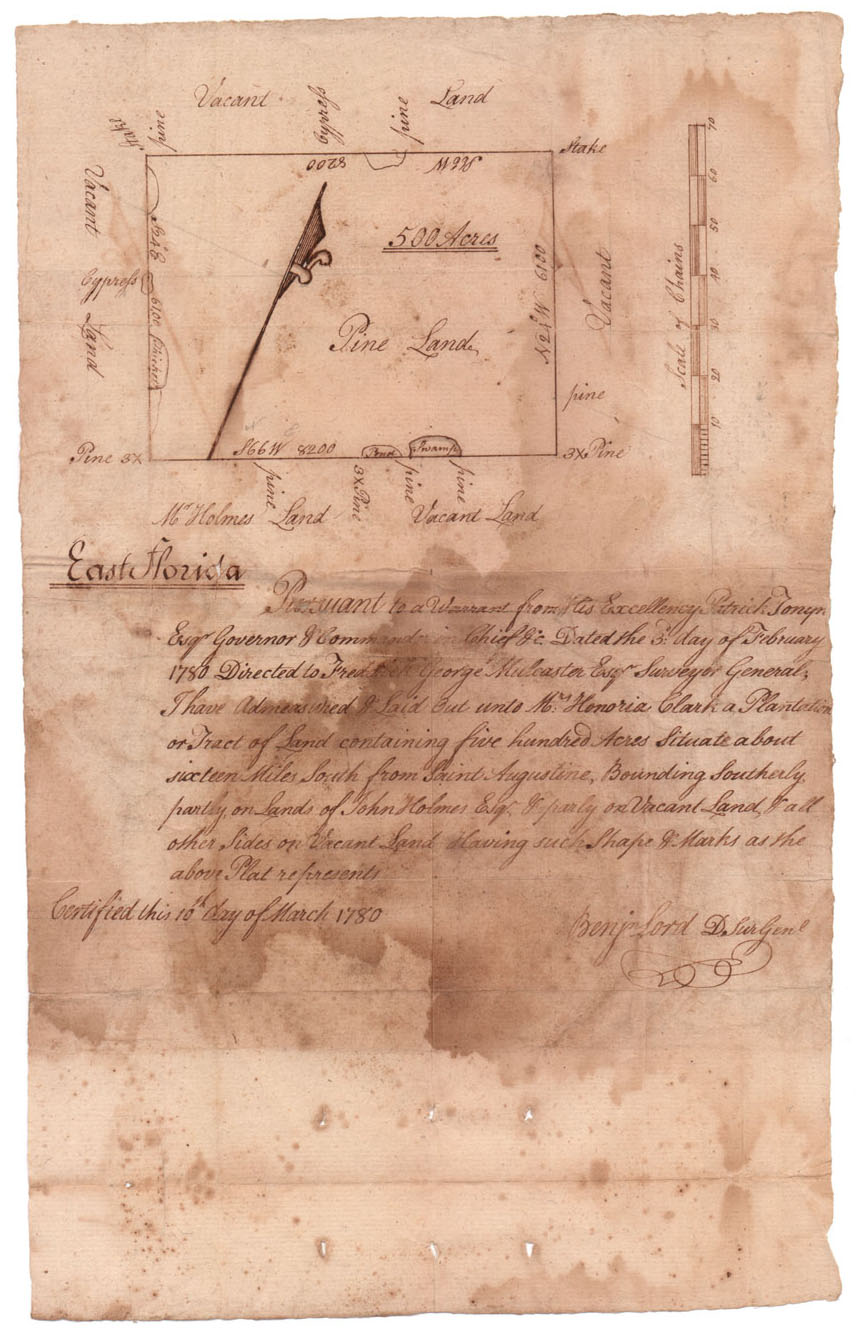 Vacant Cypress pine Land
Stake pine
Stake
8200 N66W
Vacant Cypress Land
6100 Thicket
500 Acres
Pine Land
N24W 6100
Vacant
pine
Scale of Chains
70
60
50
40
30
20
10
S66W 8200
Pond
Swamp
Pine 3X
3X Pine
pine 3X Pine pine pine
Mr Holmes Land Vacant Land
East Florida
Pursuant to a Warrant from His Excellency Patrick Tonyn
Esqr. Governor & Commander in Chief &c. Dated the 3d. day of February
1780 Directed to Frederick George Mulcaster Esqr. Surveyor General,
I have Admeasured & Laid Out unto Mrs. Honoria Clark a Plantation
or Tract of Land containing five hundred Acres Situate about
sixteen Miles South from Saint Augustine, Bounding Southerly
partly on Lands of John Holmes Esqr. & parly on Vacant Land, & all
other Sides on Vacant Land Having such Shape & Marks as the
above Plat represents
Certified this 10th day of March 1780
Benjn Lord D. Sur Genl